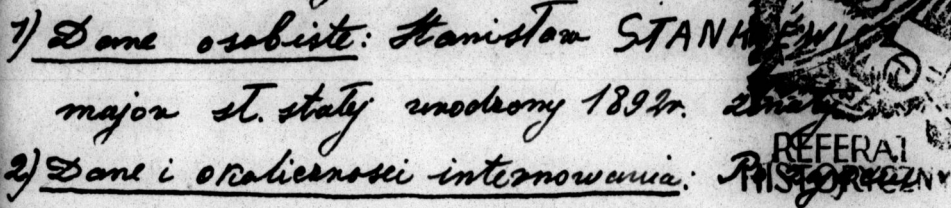 1) Dane osobiste: Stanisław STANKIEWICZ
major sł. stałej urodzony 1892r. żonaty
2) Dane i okoliczności internowania: Po
REFERAT
HISTORYCZNY